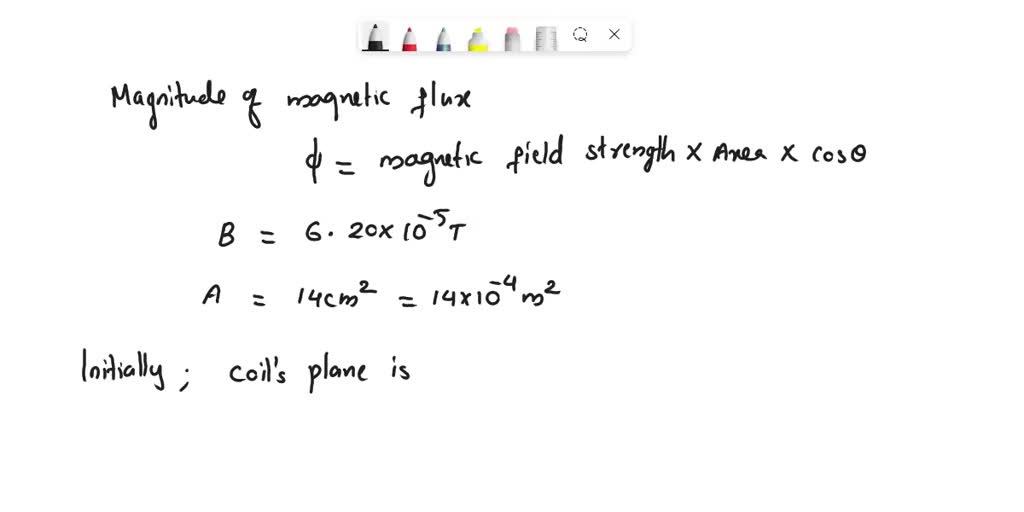 Magnitude of magnetic flux
ϕ = magnetic field strength × Area × cosθ
B = 6.20×10⁻⁵T
A = 14cm² = 14×10⁻⁴ m²
Initially; coil's plane is